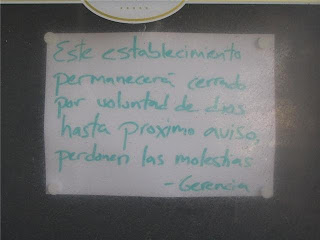 Este establecimiento
permanecerá cerrado
por voluntad de dios
hasta proximo aviso,
perdonen las molestias
- Gerencia